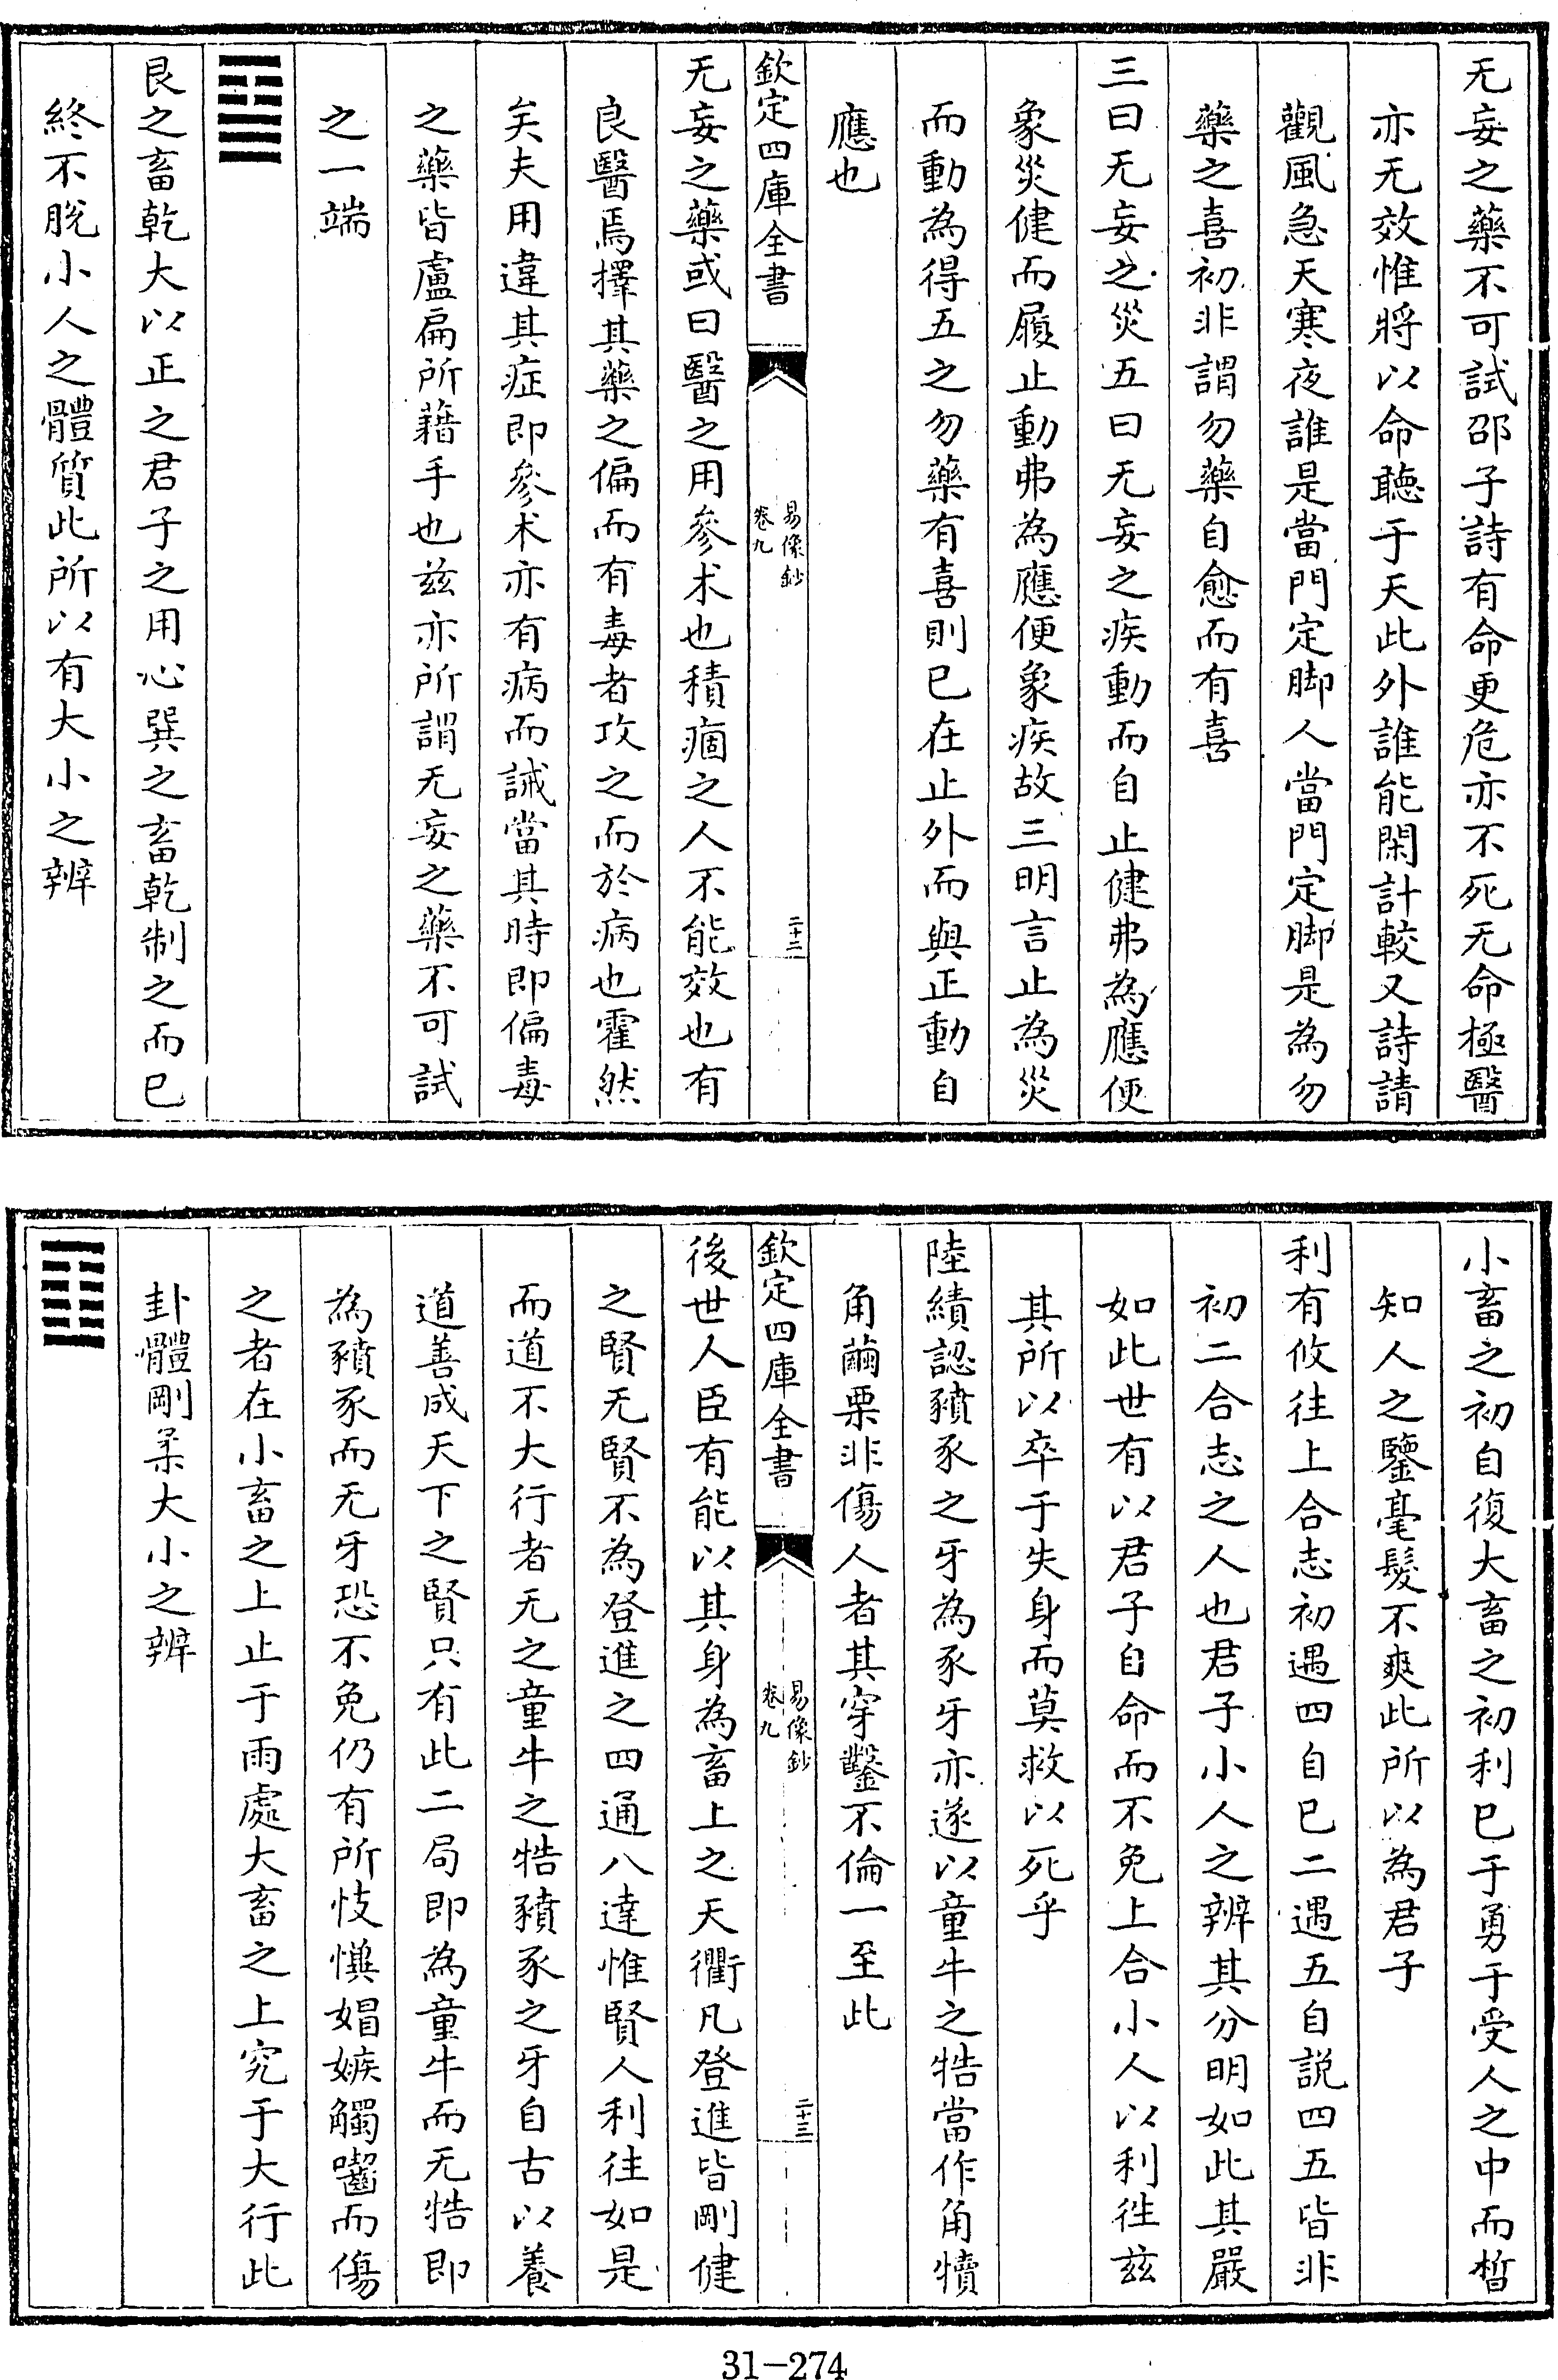 无妄之藥不可試邵子詩有命更危亦不死无命極醫
亦无效惟將以命聽于天此外誰能閑計較又詩請
觀風急天寒夜誰是當門定脚人當門定脚是為勿
藥之喜初非謂勿藥自愈而有喜
三曰无妄之災五曰无妄之疾動而自止健弗為應便
象災健而履止動弗為應便象疾故三明言止為災
而動為得五之勿藥有喜則已在止外而與正動自
應也
欽定四庫全書
易像鈔
卷九
二十二
无妄之藥或曰醫之用參术也積痼之人不能效也有
良醫焉擇其藥之偏而有毒者攻之而於病也霍然
矣夫用違其症即參术亦有病而誡當其時即偏毒
之藥皆盧扁所藉手也兹亦所謂无妄之藥不可試
之一端
䷙
艮之畜乾大以正之君子之用心巽之畜乾制之而已
終不脫小人之體質此所以有大小之辨
小畜之初自復大畜之初利已于勇于受人之中而晳
知人之鑒毫髮不爽此所以為君子
利有攸往上合志初遇四自已二遇五自説四五皆非
初二合志之人也君子小人之辨其分明如此其嚴
如此世有以君子自命而不免上合小人以利往兹
其所以卒于失身而莫救以死乎
陸績認豶豕之牙為豕牙亦遂以童牛之牿當作角犢
角繭栗非傷人者其穿鑿不倫一至此
欽定四庫全書
易像鈔
卷九
二十三
後世人臣有能以其身為畜上之天衢凡登進皆剛健
之賢无賢不為登進之四通八達惟賢人利往如是
而道不大行者无之童牛之牿豶豕之牙自古以養
道善成天下之賢只有此二局即為童牛而无牿即
為豶豕而无牙恐不免仍有所忮懻媢嫉觸囓而傷
之者在小畜之上止于雨處大畜之上究于大行此
卦體剛柔大小之辨
䷚
31-274